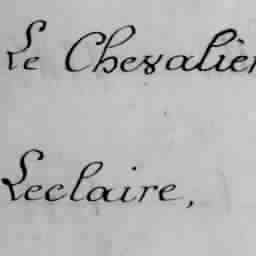 Le Chevalier
Leclaire,